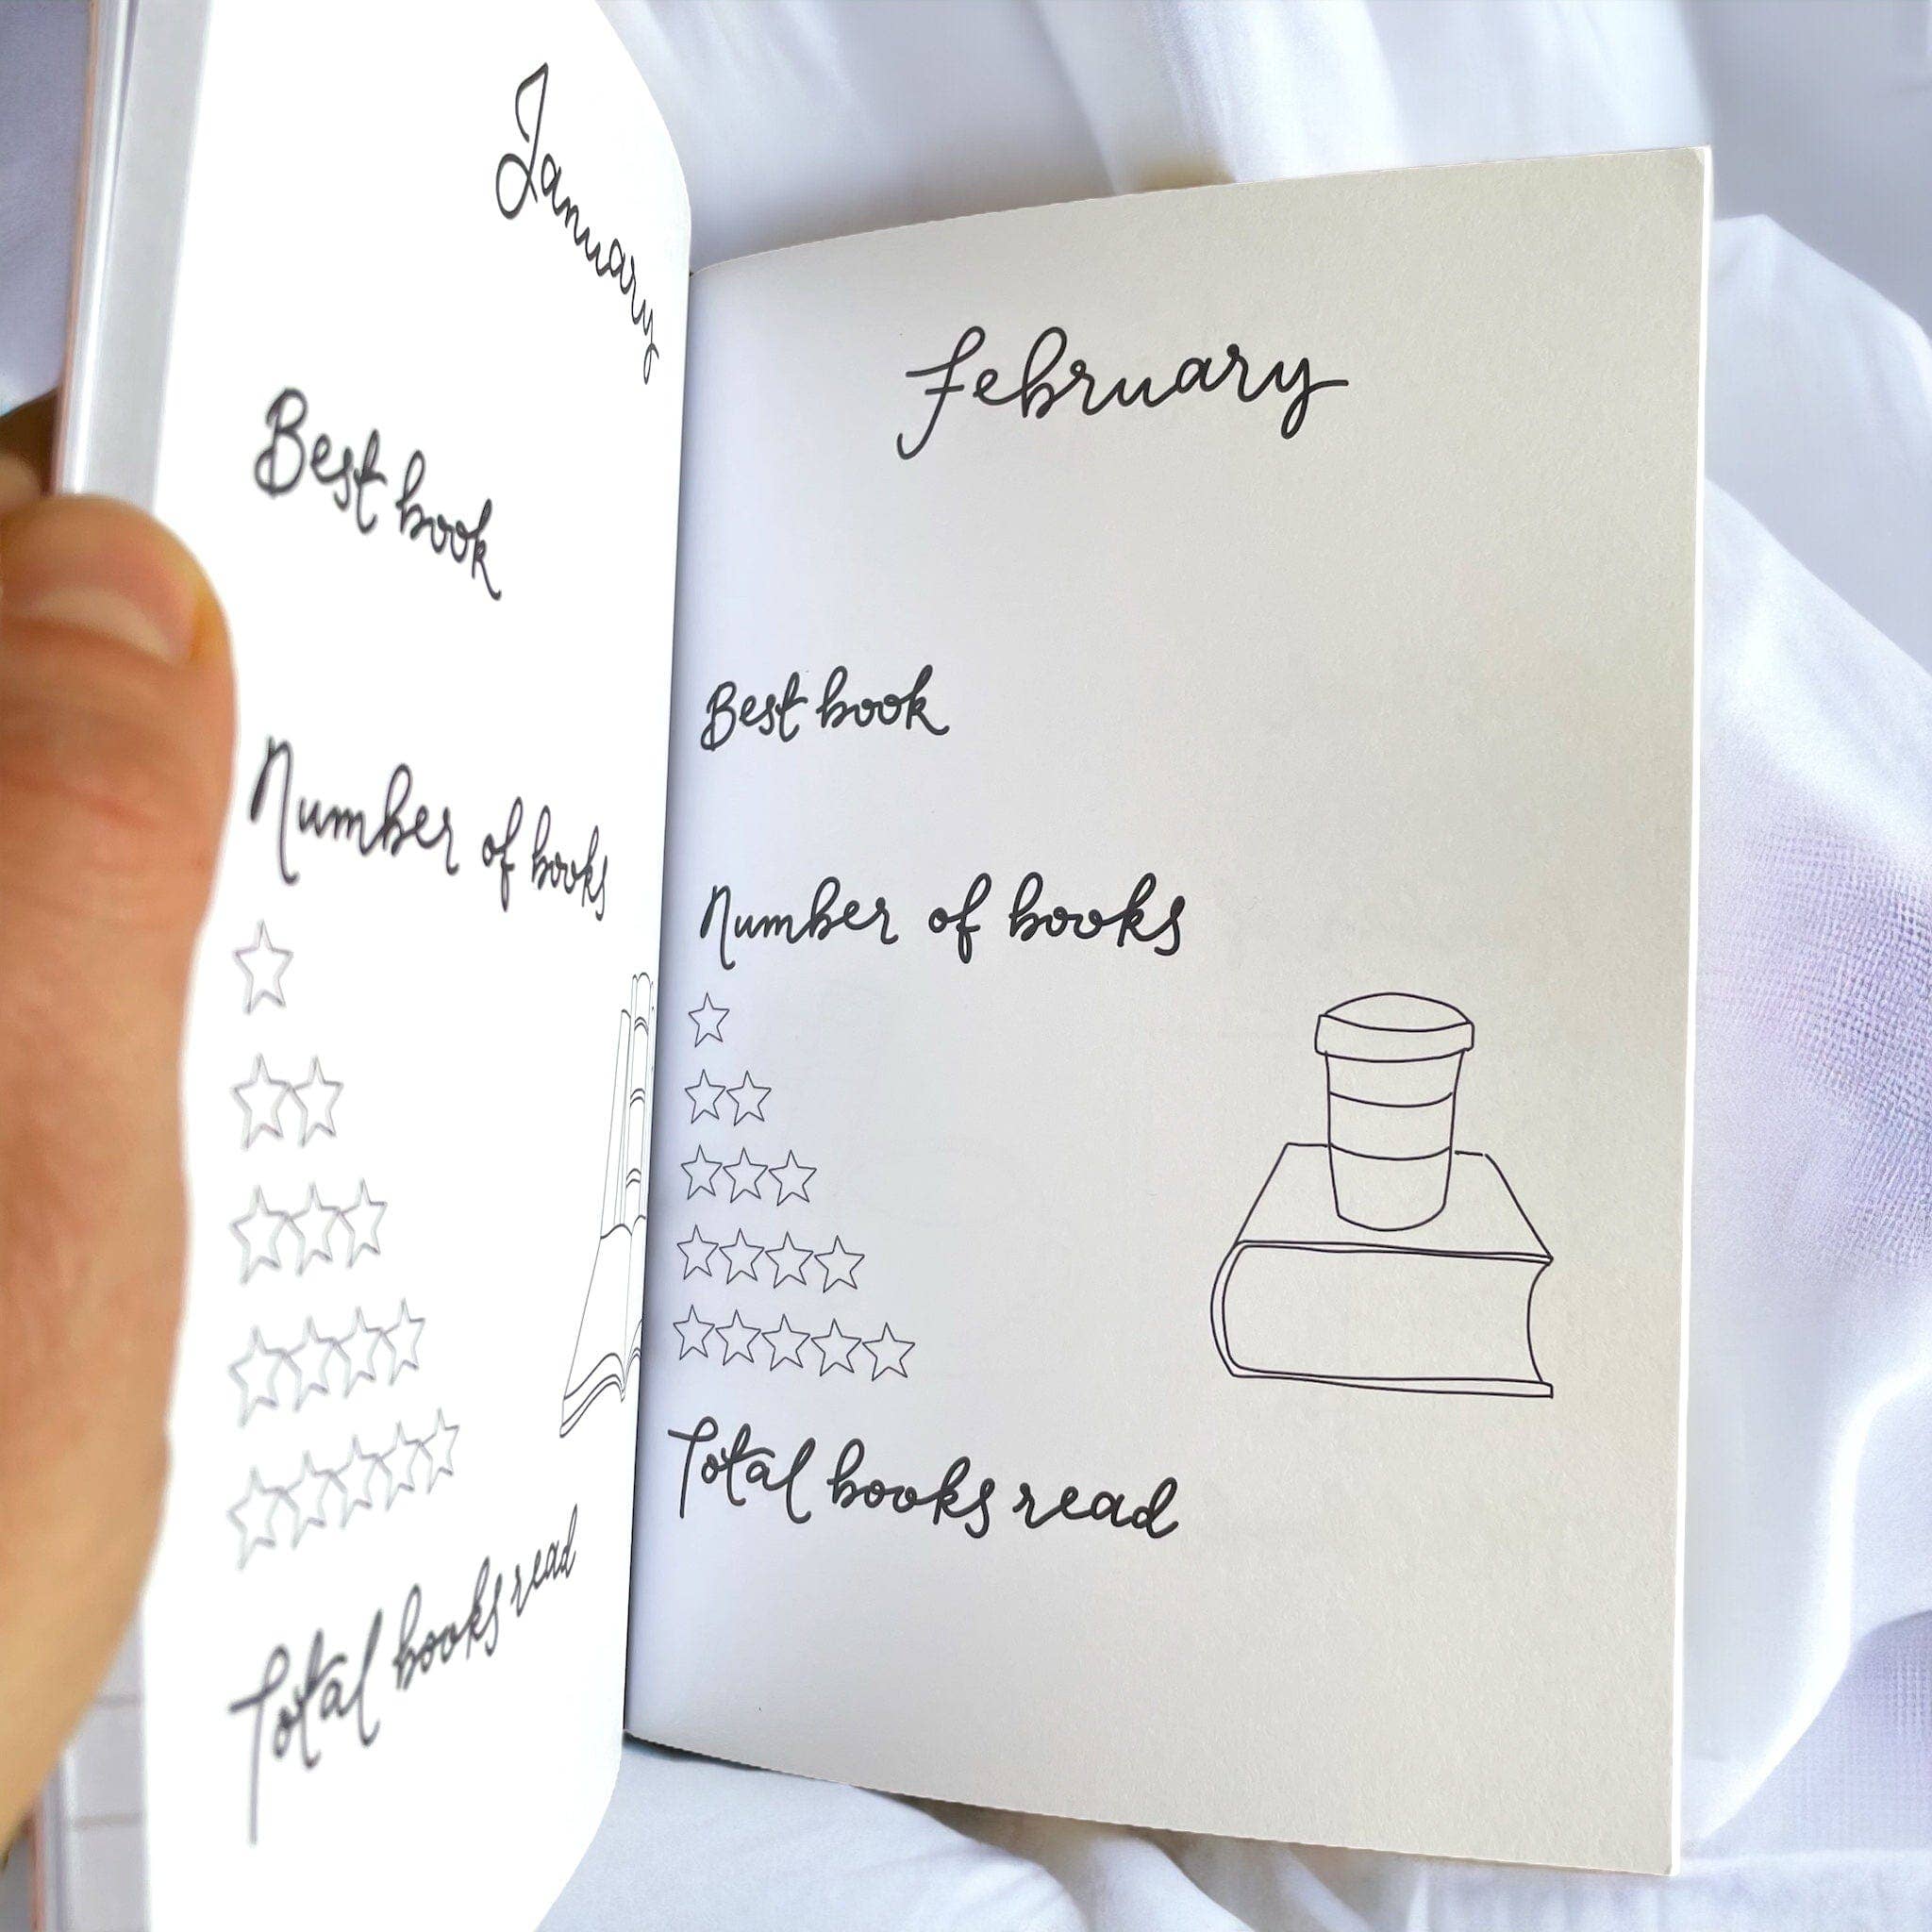 January
Best book
Number of books
Total books read
February
Best book
Number of books
Total books read